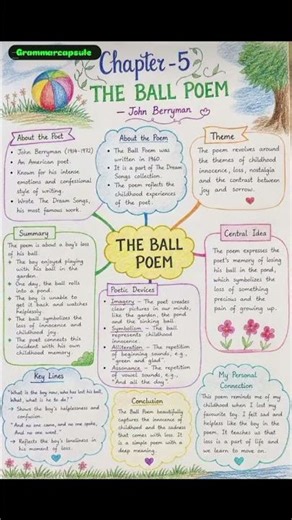 Grammarcapsule
Chapter-5
THE BALL POEM
- John Berryman
About the Poet
• John Berryman (1914-1972)
• An American poet.
• Known for his intense
emotions and confessional
style of writing.
• Wrote The Dream Songs,
his most famous work.
About the Poem
• The Ball Poem was
written in 1960.
• It is a part of The Dream
Songs collection.
• The poem reflects the
childhood experiences
of the poet.
Theme
The poem revolves around
the themes of childhood
innocence, loss, nostalgia
and the contrast between
joy and sorrow.
Summary
The poem is about a boy's loss
of his ball.
• The boy enjoyed playing
with his ball in the
garden.
• One day, the ball rolls
into a pond.
• The boy is unable to
get it back and watches
helplessly.
• The ball symbolizes the
loss of innocence and
childhood joy.
• The poet connects this
incident with his own
childhood memory.
THE BALL
POEM
Central Idea
The poem expresses the
poet's memory of losing
his ball in the pond,
which symbolizes the
loss of something
precious and the
pain of growing up.
Poetic Devices
• Imagery - The poet creates
clear pictures in our mind,
like the garden, the pond
and the sinking ball.
• Symbolism - The ball
represents childhood
innocence.
• Alliteration - The repetition
of beginning sounds, e.g.,
"green and glad".
• Assonance - The repetition
of vowel sounds, e.g.,
"And all the day".
Key Lines
"What is the boy now, who has lost his ball,
What, what is he to do?"
→ Shows the boy's helplessness and
confusion.
"And no one came, and no one spoke,
And no one went."
→ Reflects the boy's loneliness in
his moment of loss.
Conclusion
The Ball Poem beautifully
captures the innocence of
childhood and the sadness
that comes with loss. It
is a simple poem with a
deep meaning.
My Personal
Connection
This poem reminds me of my
childhood when I lost my
favourite toy. I felt sad and
helpless like the boy in the
poem. It teaches us that
loss is a part of life and
we learn to move on.